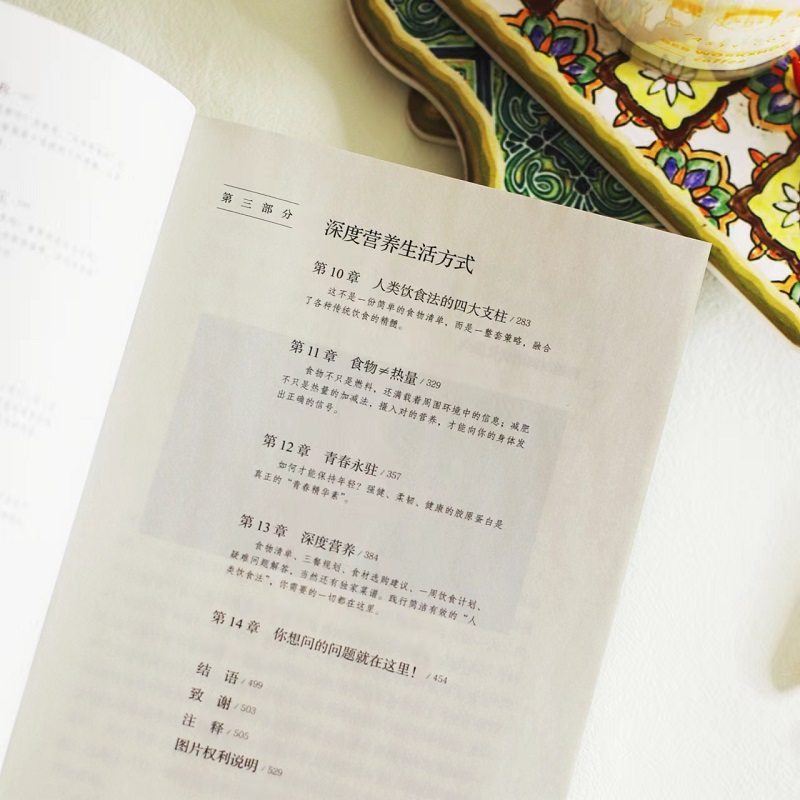 第三部分
深度营养生活方式
第10章 人类饮食法的四大支柱 / 283
这不是一份简单的食物清单，而是一整套策略，融合
了各种传统饮食的精髓。
第11章 食物≠热量 / 329
食物不只是燃料，还满载着周围环境中的信息；减肥
不只是热量的加减法，摄入对的营养，才能向你的身体发
出正确的信号。
第12章 青春永驻 / 357
如何才能保持年轻？强健、柔韧、健康的胶原蛋白是
真正的“青春精华素”。
第13章 深度营养 / 384
食物清单、三餐规划、食材选购建议、一周饮食计划、
疑难问题解答，当然还有独家菜谱。践行简洁有效的“人
类饮食法”，你需要的一切都在这里。
第14章 你想问的问题就在这里！ / 454
结 语 / 499
致 谢 / 503
注 释 / 505
图片权利说明 / 529